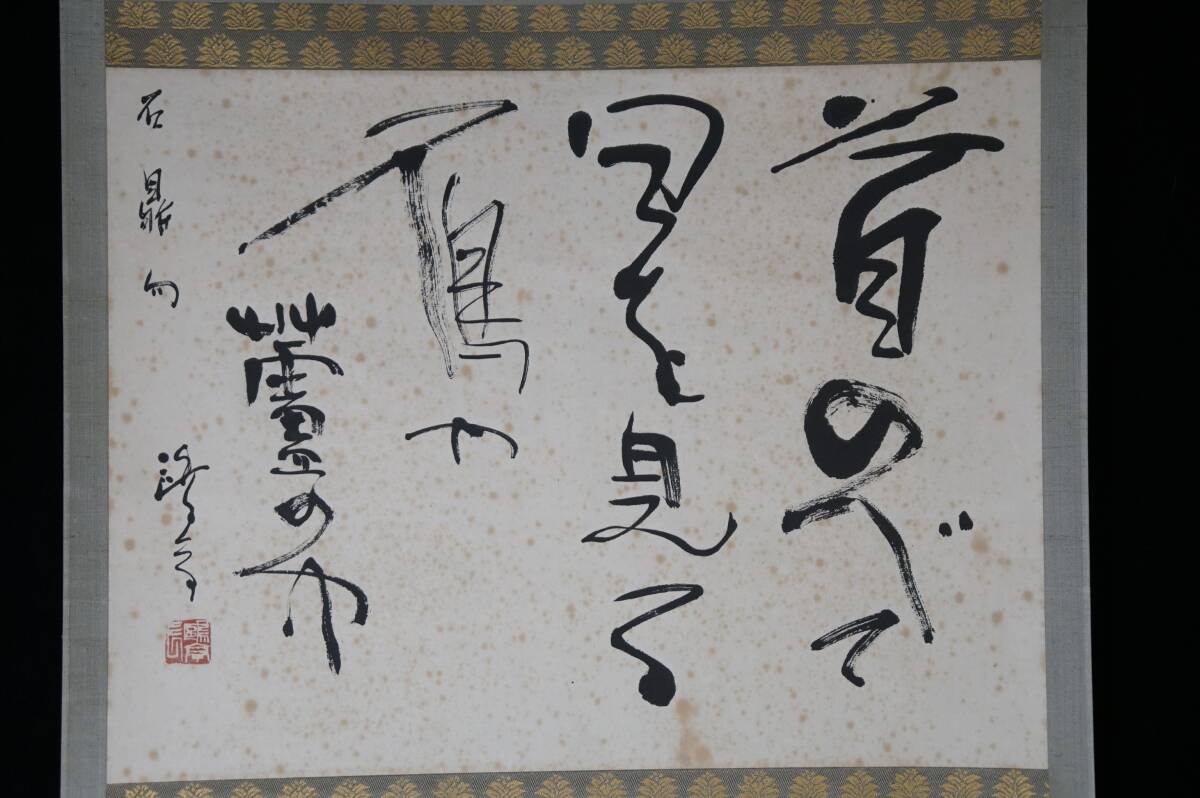 首のべて
日を見る
鴈や
蘆の中
石鼎句